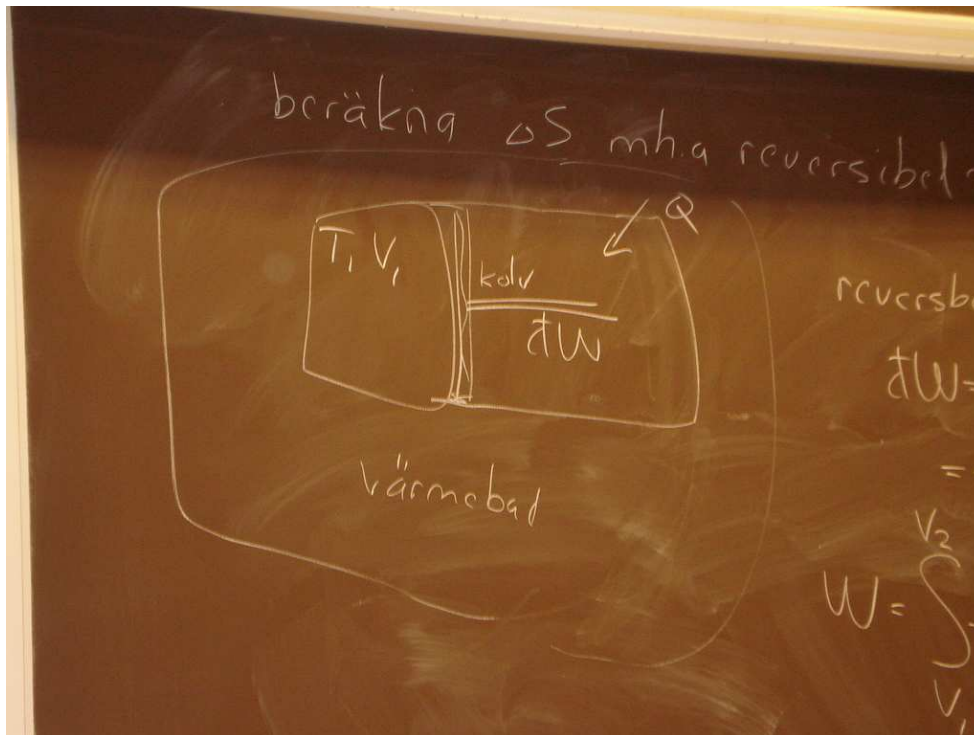 beräkna ΔS mh.a reversibel
Q
T₁ V₁
kolv
đW
värmebad
reversb
đW=
=
V₂
W= ∫
V₁